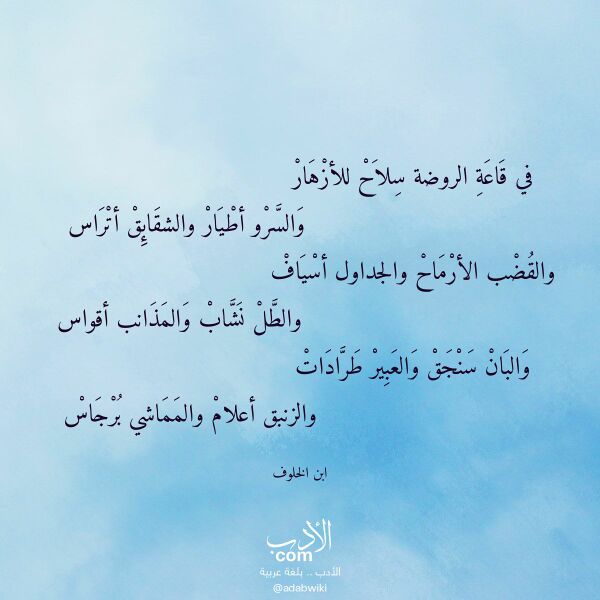 في قَاعَةِ الروضة سِلاَحْ للأزْهَارْ
وَالسَّرْو أطْيَارْ والشقَايِقْ أتْرَاس
والقُضْب الأرْمَاحْ والجداول أسْيَافْ
والطَّلْ نَشَّابْ وَالمَذَانب أقواس
وَالبَانْ سَنْجَقْ وَالعَبِيرْ طَرَّادَاتْ
والزنبق أعلامْ والمَمَاشي بُرْجَاسْ
ابن الخلوف
الأدب
com
الأدب .. بلغة عربية
@adabwiki